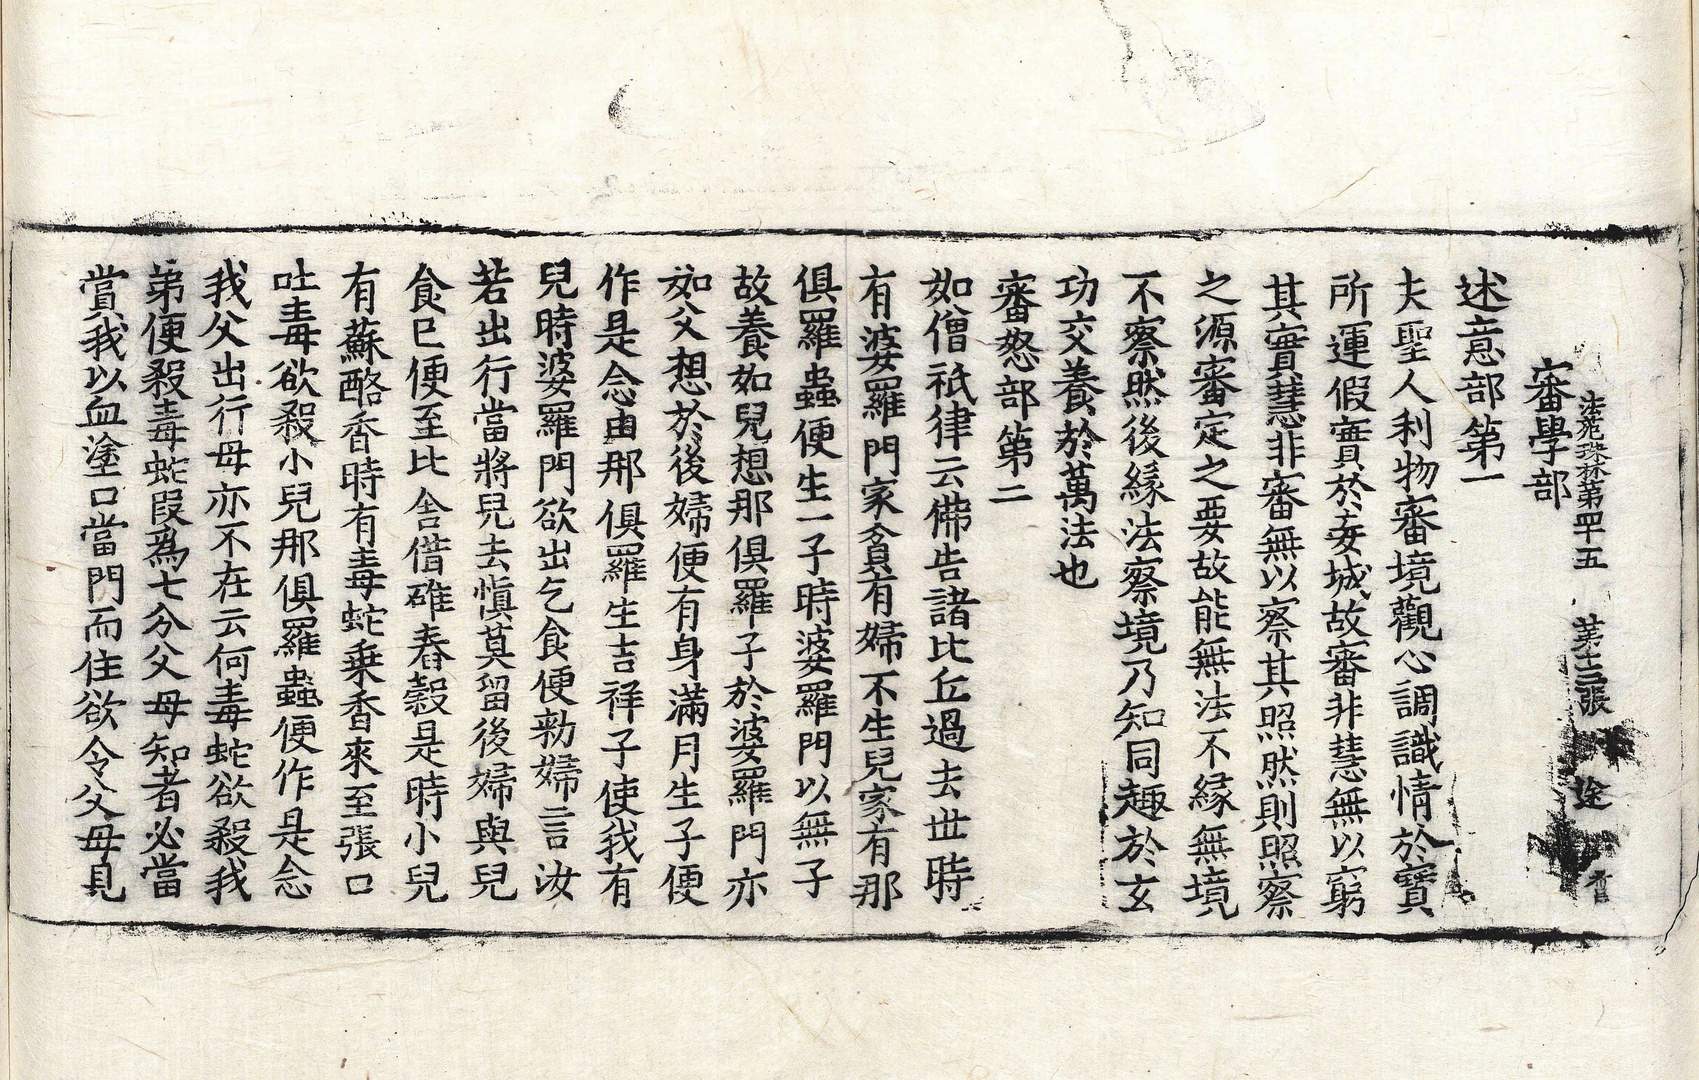 法苑珠林第四十五 第十二張 途
審學部
述意部第一
夫聖人利物審境觀心調識情於寶
所運假實於妄城故審非慧無以窮
其實慧非審無以察其照然則照察
之源審定之要故能無法不緣無境
不察然後緣法察境乃知同趣於玄
功交養於萬法也
審怒部第二
如僧祇律云佛告諸比丘過去世時
有婆羅門家貧有婦不生兒家有那
俱羅蟲便生一子時婆羅門以無子
故養如兒想那俱羅子於婆羅門亦
如父想於後婦便有身滿月生子便
作是念由那俱羅生吉祥子使我有
兒時婆羅門欲出乞食便勑婦言汝
若出行當將兒去慎莫留後婦與兒
食已便至比舍借碓舂穀是時小兒
有蘇酪香時有毒蛇乘香來至張口
吐毒欲殺小兒那俱羅蟲便作是念
我父出行母亦不在云何毒蛇欲殺我
弟便殺毒蛇段為七分父母知者必當
賞我以血塗口當門而住欲令父母見